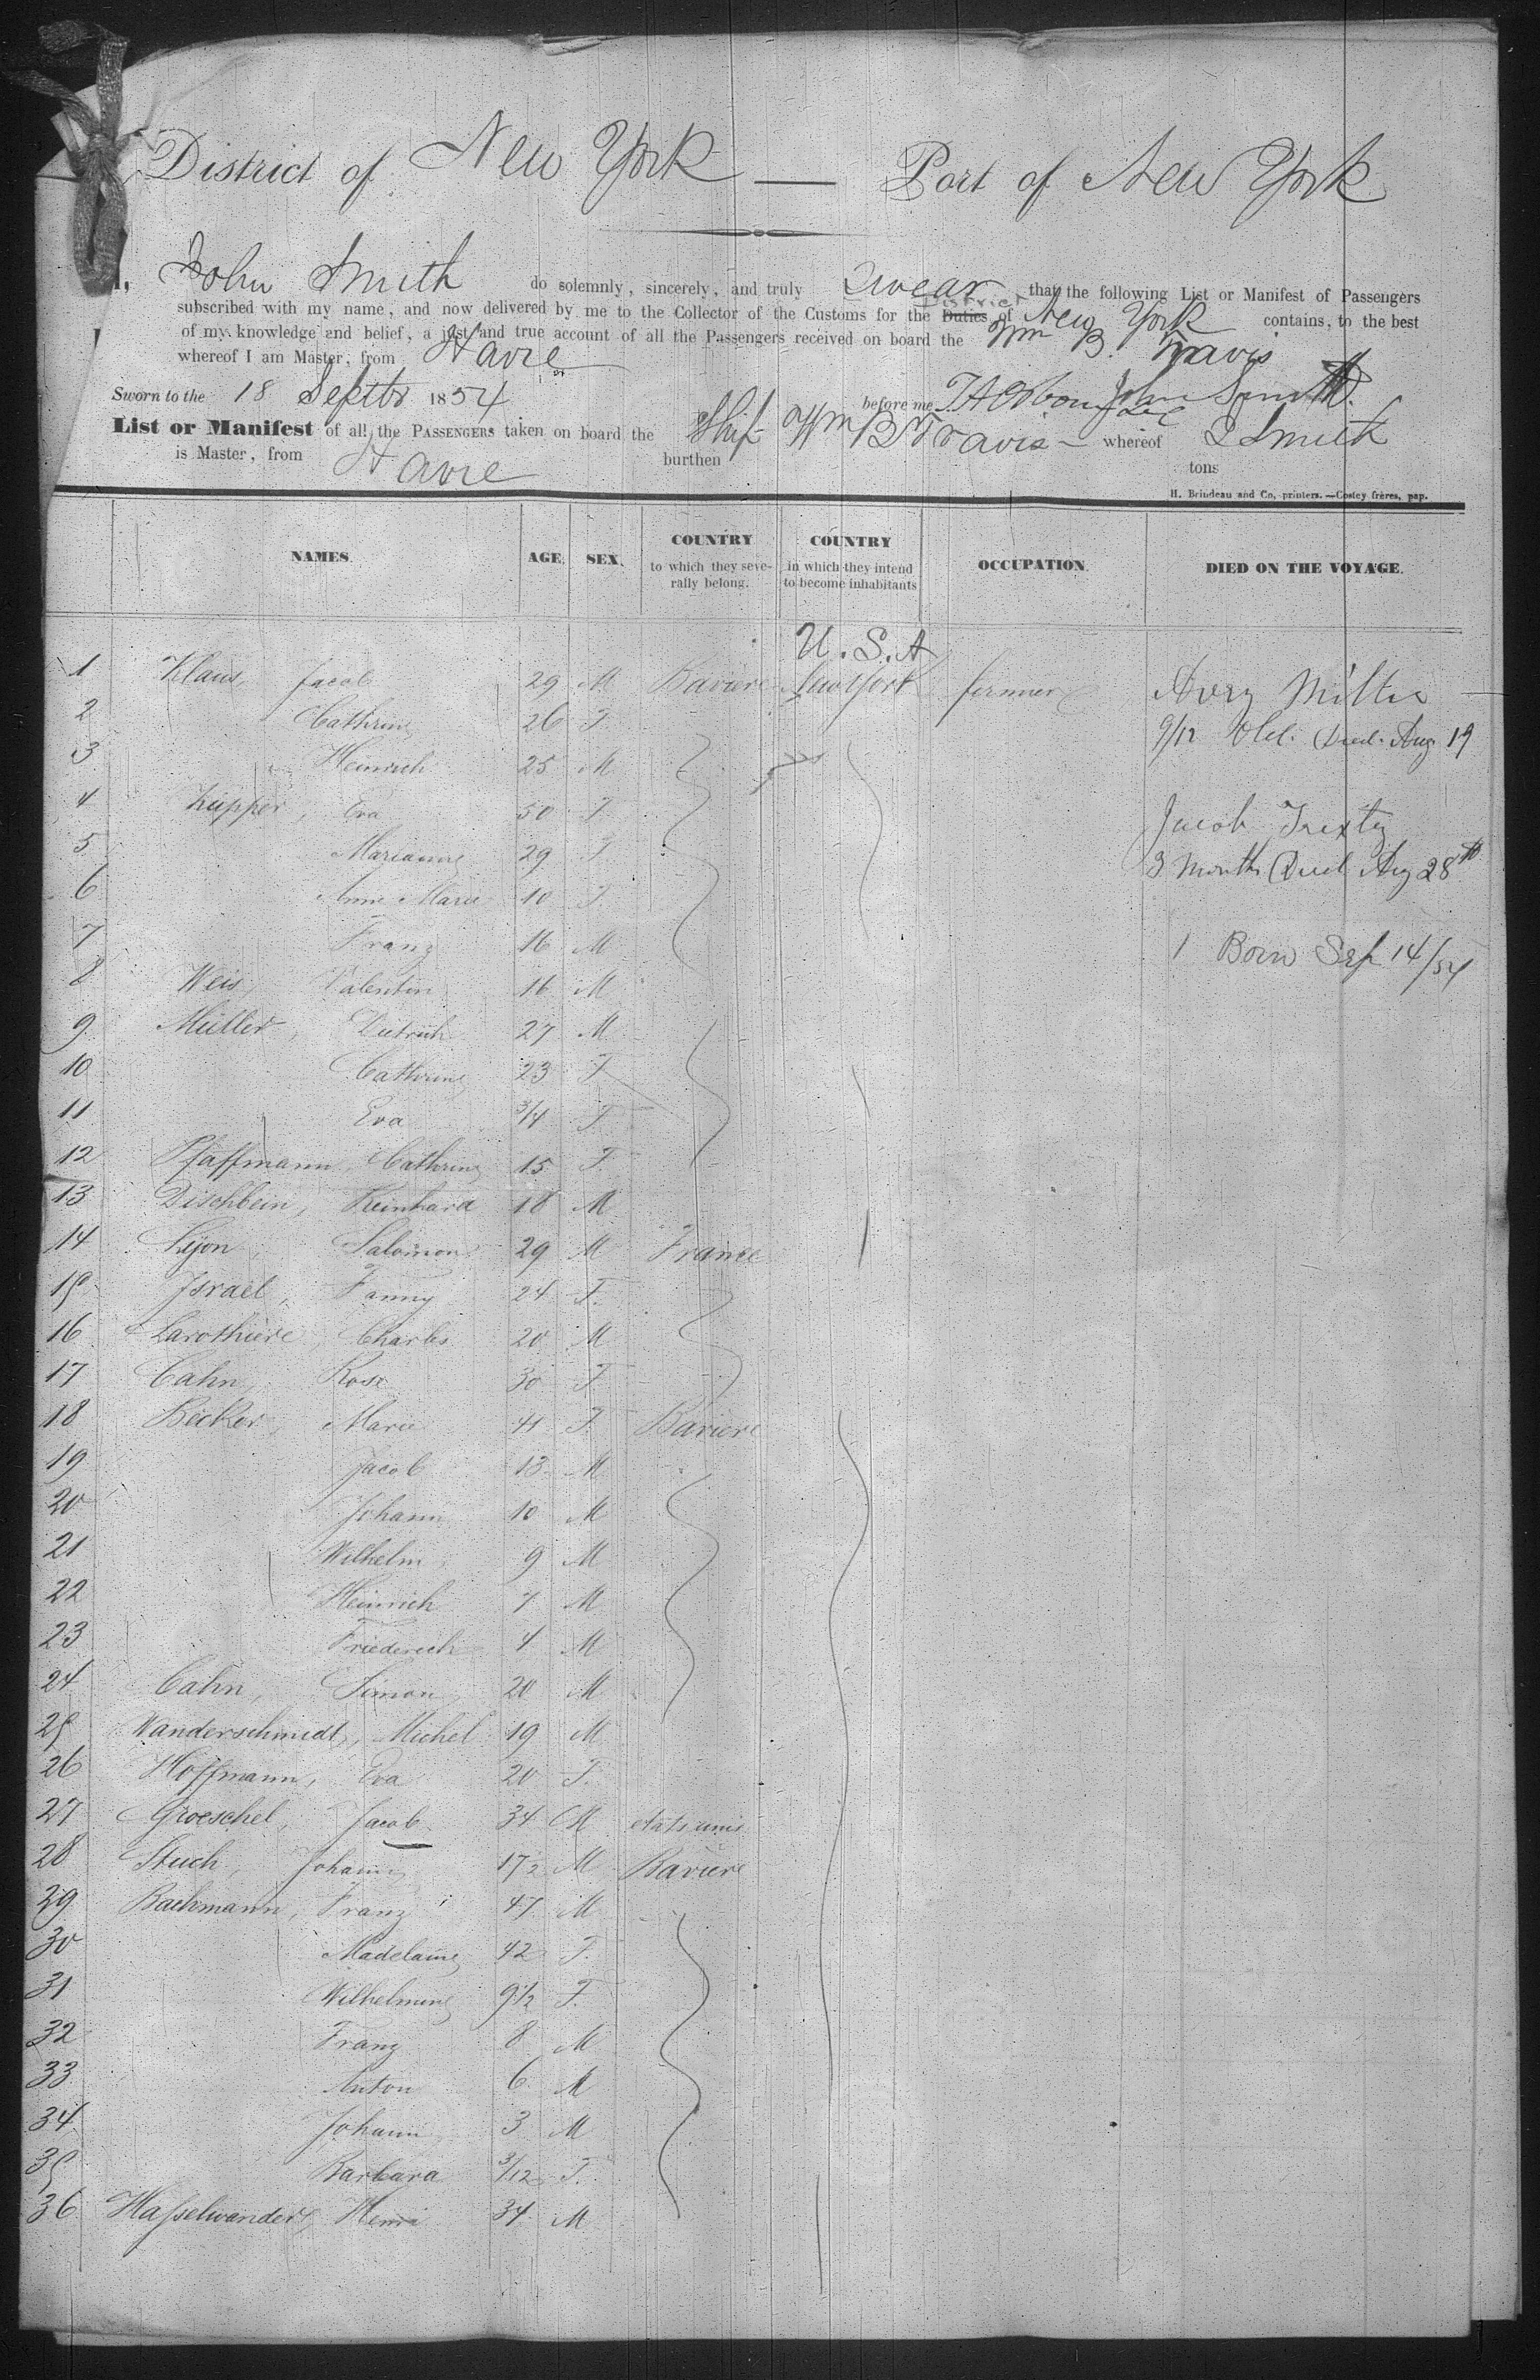 District of New York — Port of New York
I, John Smith do solemnly, sincerely, and truly swear that the following List or Manifest of Passengers
subscribed with my name, and now delivered by me to the Collector of the Customs for the Duties District of New York contains, to the best
of my knowledge and belief, a just and true account of all the Passengers received on board the Wm B. Travis
whereof I am Master, from Havre
Sworn to the 18 Septbr 1854 before me John Smith
List or Manifest of all the PASSENGERS taken on board the Ship Wm B Travis — whereof J Smith
is Master, from Havre burthen tons
H. Brindeau and Co, printers. — Costey frères, pap.
NAMES. AGE SEX. COUNTRY to which they severally belong. COUNTRY in which they intend to become inhabitants OCCUPATION. DIED ON THE VOYAGE.
U.S.A
1 Klaus, Jacob 29 M Baviere New York farmer Avery Miller
2 Cathrine 26 F 9/12 Old. Died. Aug 19
3 Heinrich 25 M
4 Kupper, Eva 50 F Jacob
5 Marianne 29 F 3 Months Died Aug 28th
6 Anne Marie 10 F
7 Franz 16 M 1 Born Sep 14/54
8 Weis, Valentin 16 M
9 Müller, Dietrich 27 M
10 Cathrine 23 F
11 Eva 3/4 F
12 Pfaffmann, Cathrine 15 F
13 Dischbein, Reinhard 18 M
14 Lyon, Salomon 29 M France
15 Israel, Fanny 24 F.
16 Larothiere, Charles 20 M
17 Cahn, Rose 30 F
18 Becker, Marie 41 F. Baviere
19 Jacob 13 M
20 Johann 10 M
21 Wilhelm 9 M
22 Heinrich 7 M
23 Friederich 4 M
24 Cahn, Simon 20 M
25 Wanderschmidt, Michel 19 M
26 Hoffmann, Eva 20 F.
27 Groeschel, Jacob 34 M etats unis
28 Stuch, Johann 17 1/2 M Baviere
29 Bachmann, Franz 47 M
30 Madelaine 42 F.
31 Wilhelmine 9 1/2 F.
32 Franz 8 M
33 Anton 6 M
34 Johann 3 M
35 Barbara 3/12 F.
36 Hasselwander, Henri 34 M